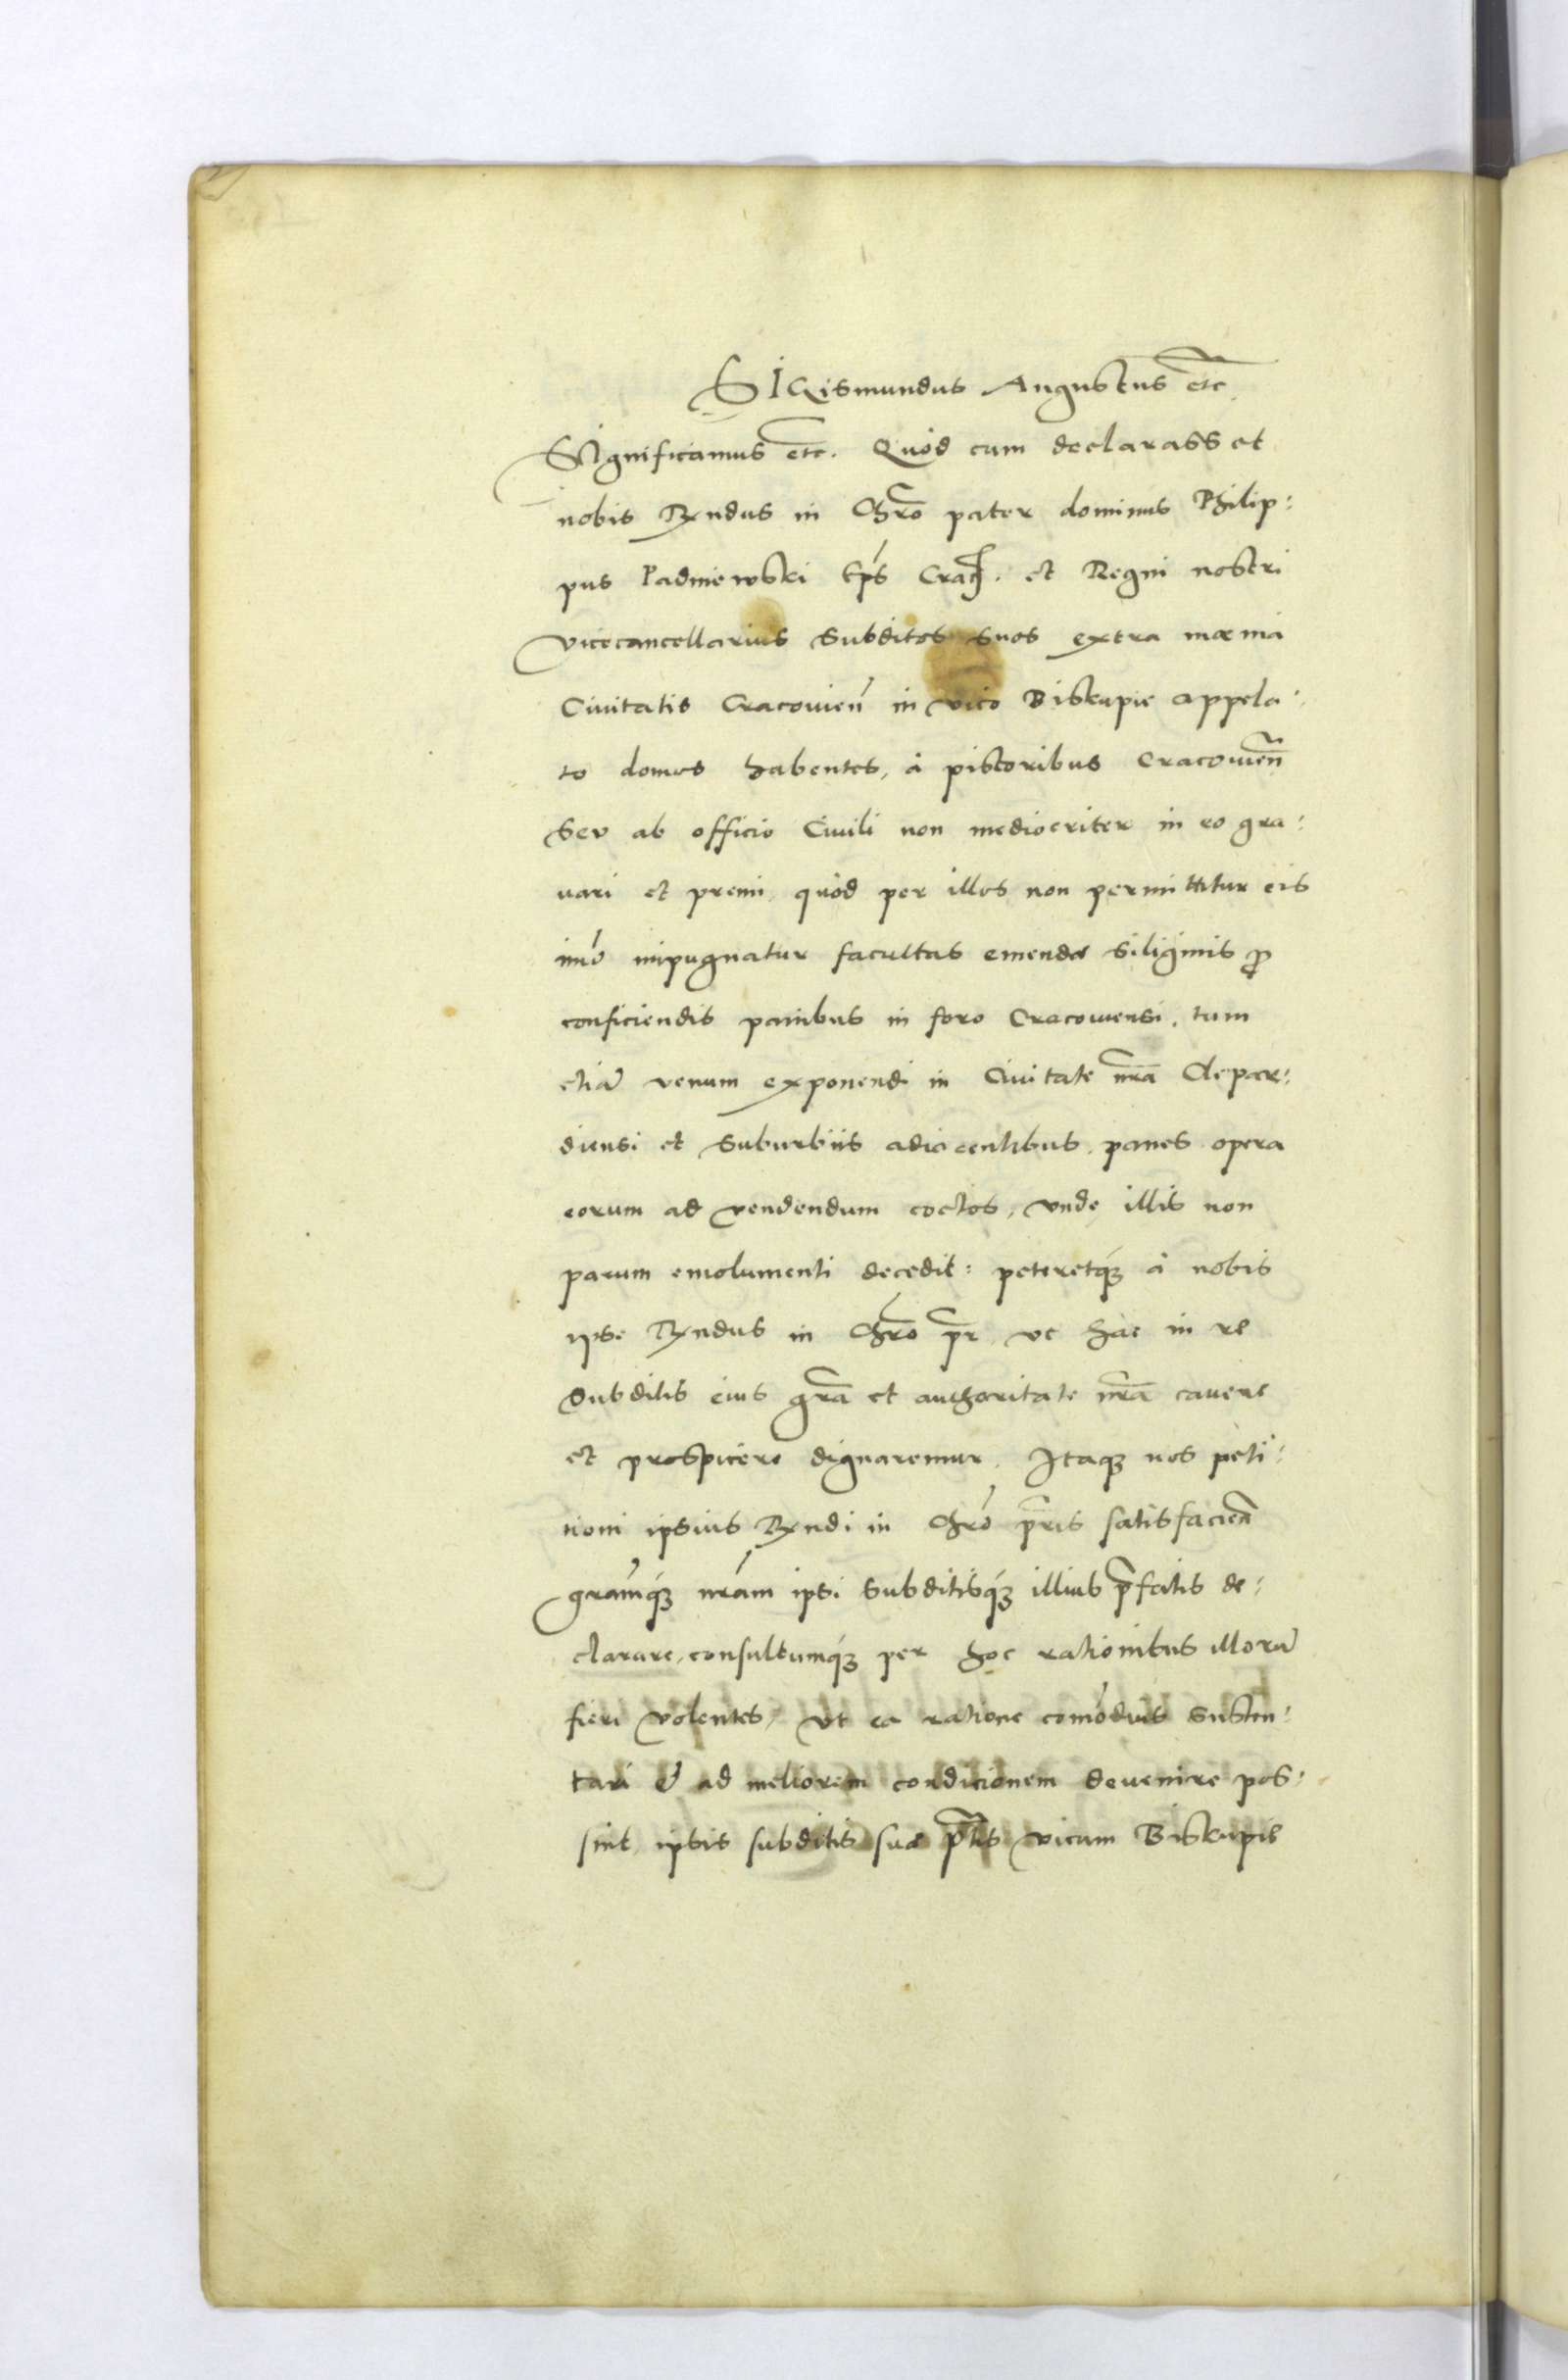 SIGismundus Augustus etc
SIgnificamus etc. Quòd cum declarasset
nobis Rxndus in Chrõ pater dominus Philip:
pus Padniewski Eps̃ Crac̃. et Regni nostri
vicecancellarius subditos suos extra mœnia
Ciuitatis Cracouieñ in vico Biskupie appela:
to domos habentes, à pistoribus Cracouieñ
seu ab officio Ciuili non mediocriter in eo gra:
uari et premi quòd per illos non permittitur eis
imò impugnatur facultas emendæ siliginis ꝓ
conficiendis panibus in foro Cracouiensi, tum
etiã venum exponendi in Ciuitate nrã Clepar:
diensi et suburbiis adiacentibus panes opera
eorum ad vendendum coctos, vnde illis non
parum emolumenti decedit: peteretq́ꝫ à nobis
ipse Rxndus in Chrõ pr̃ vt hac in re
subditis eius grã et authoritate nrã cauere
et prospicere dignaremur. Itaqꝫ nos peti:
tioni ipsius Rxndi in Chrõ pr̃is satisfacieñ
grãmq́ꝫ nrãm ipsi subditisq́ꝫ illius p̃fatis de:
clarare, consultumq́ꝫ per hoc rationibus illorũ
fieri volentes, vt ea ratione com̃odius susten:
tari & ad meliorem condicionem deuenire pos:
sint, ipsis subditis suæ p̃tis vicum Biskupie